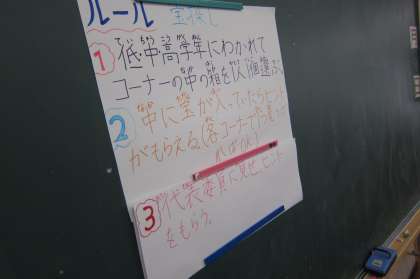 ルール 宝探し
1 低・中・高学年にわかれて
コーナーの中の箱を1人1個選ぶ。
2 中に宝が入っていたらヒント
がもらえる。(各コーナー
ればOK)
3 代表委員に見せ、ヒント
をもらう。